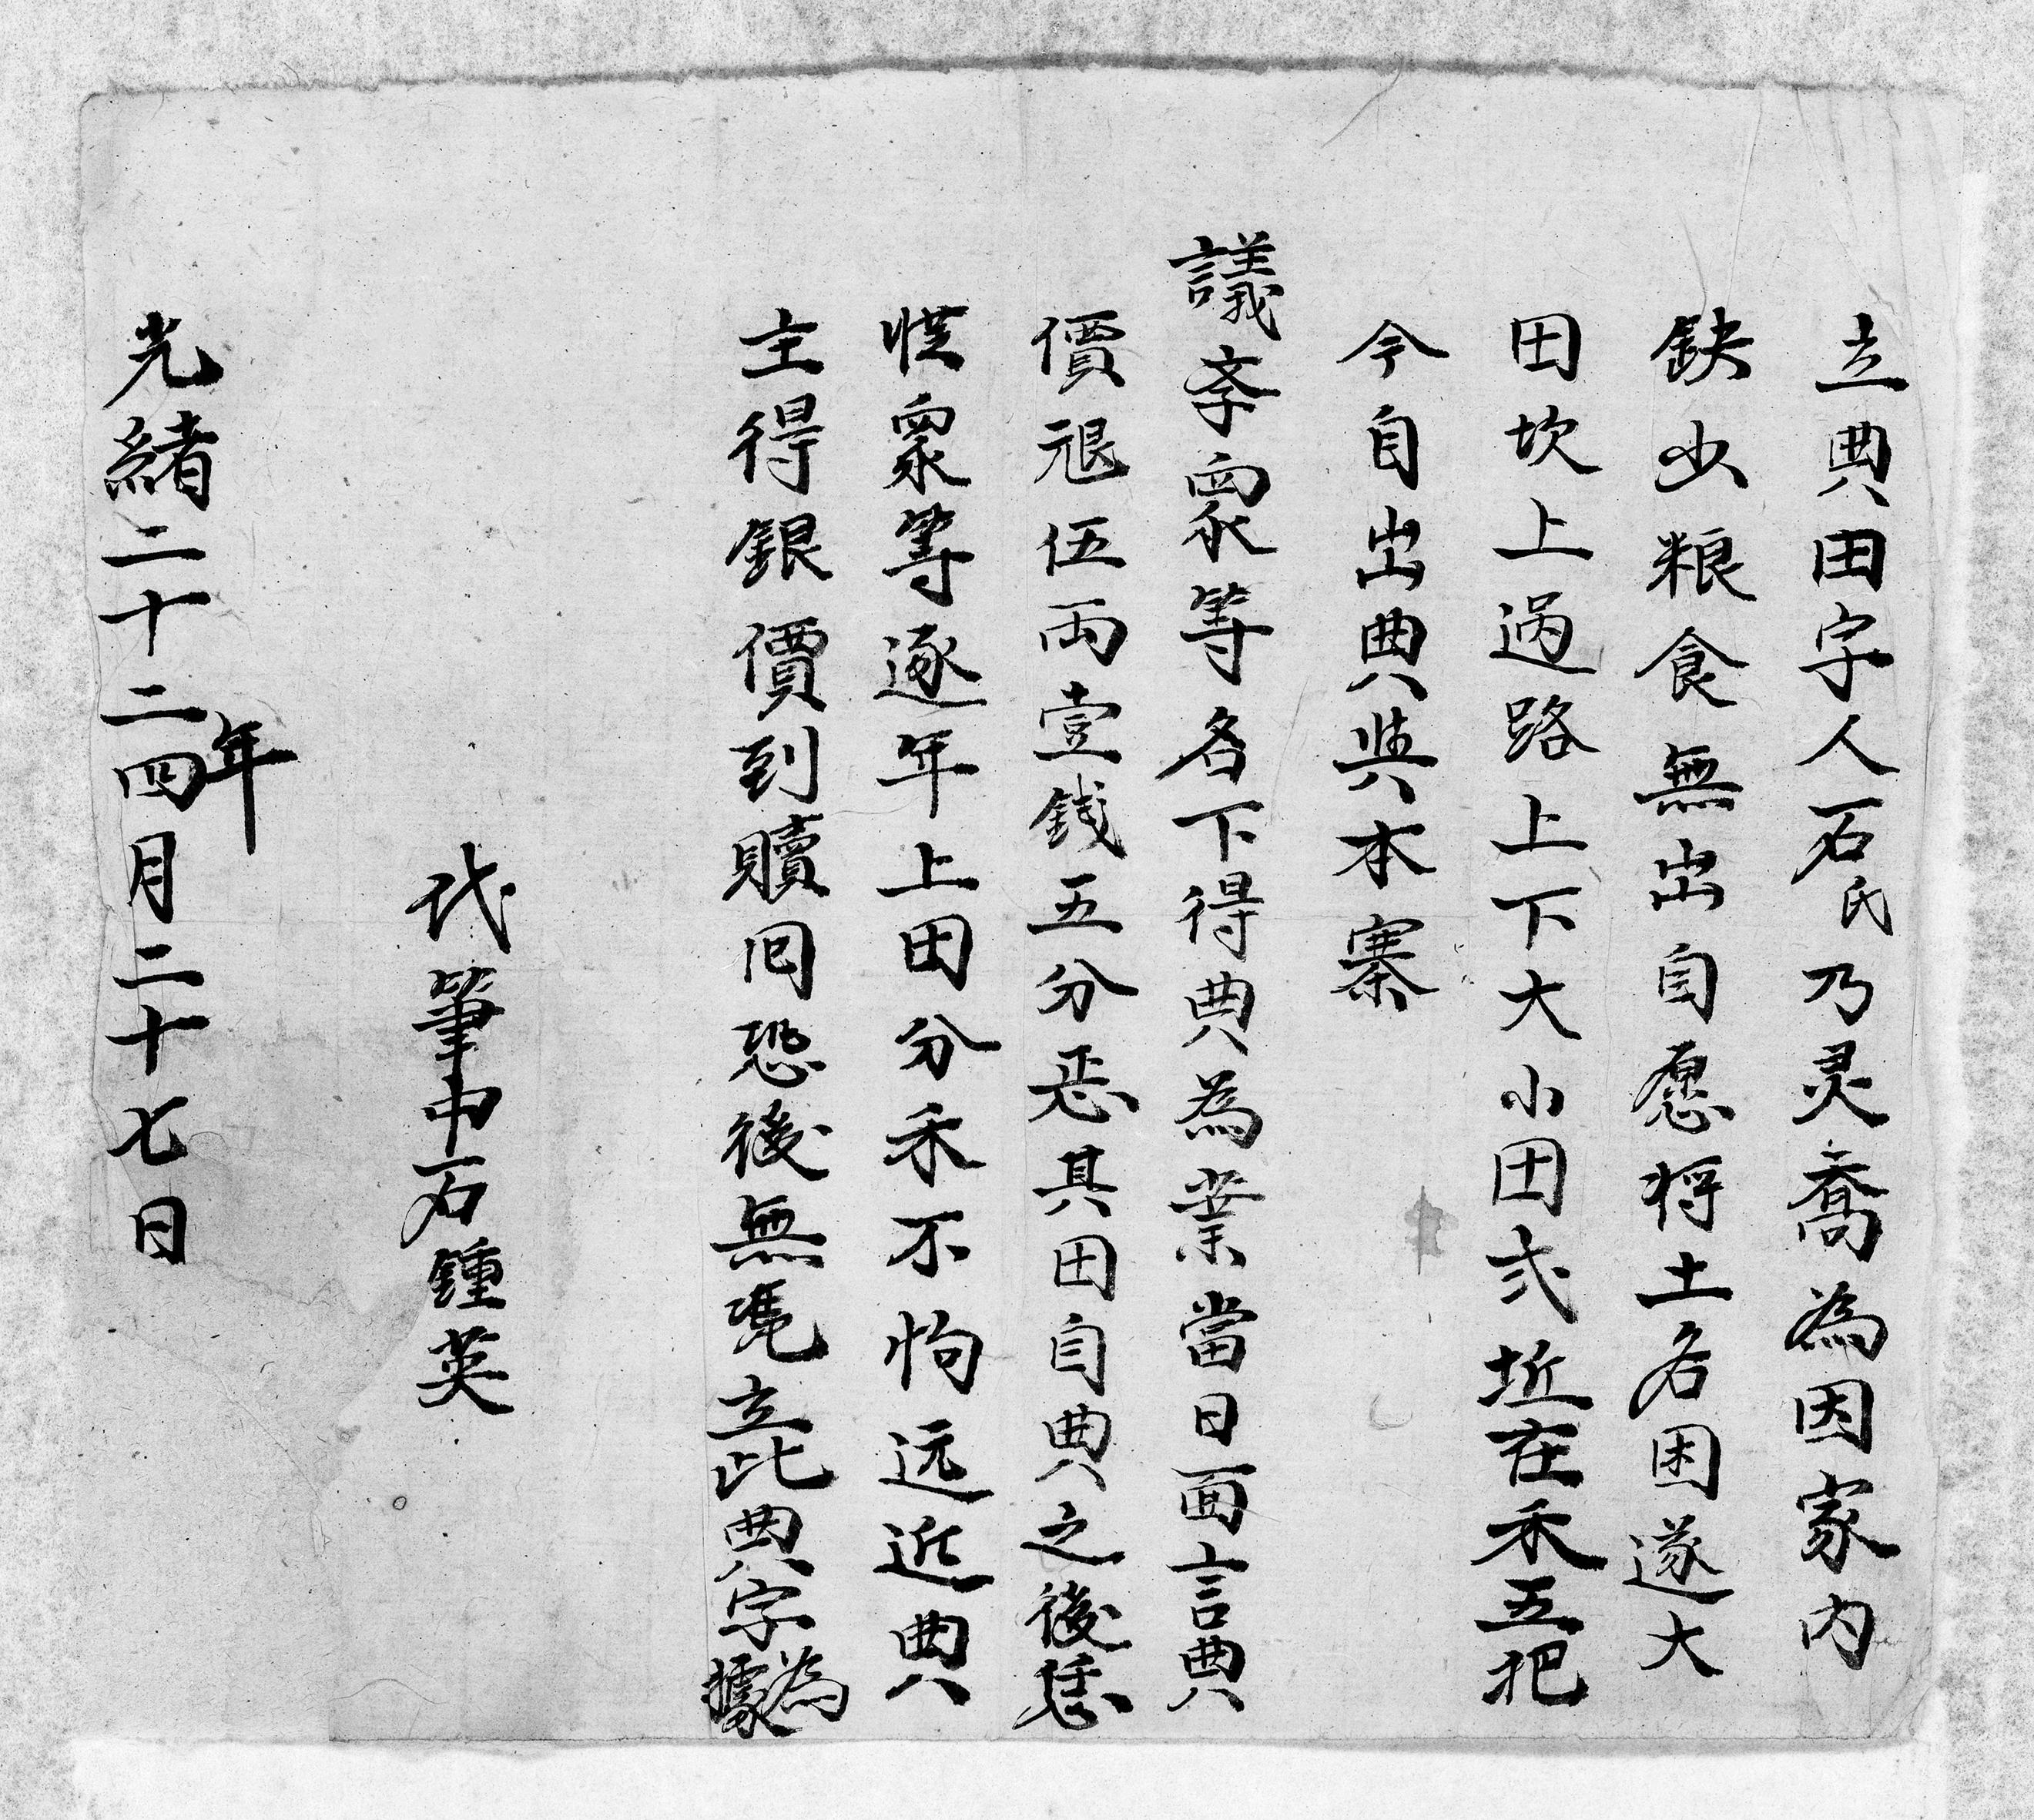 立典田字人石氏乃灵喬為因家内
缺少粮食無出自愿将土名困遂大
田坎上過路上下大小田弍坵在禾五把
今自出典與本寨
議孝眾等名下得典為業當日面言典
價银伍両壹錢五分恶其田自典之後恁
慿眾等逐年上田分禾不怐远近典
主得銀價到贖囘恐後無凴立此典字為據
代筆中石鍾英
光緒二十二年四月二十七日